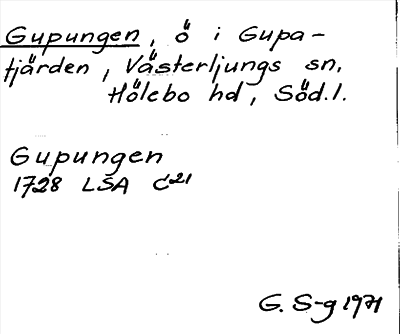 Gupungen, ö i Gupa-
fjärden, Västerljungs sn,
Hölebo hd, Söd.l.
Gupungen
1728 LSA C21
G. S-g 1971